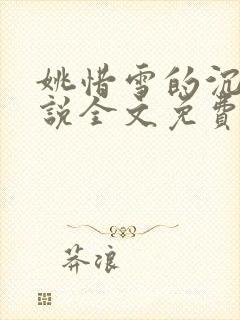 姚惜雪的沉
說全文免費
莽浪